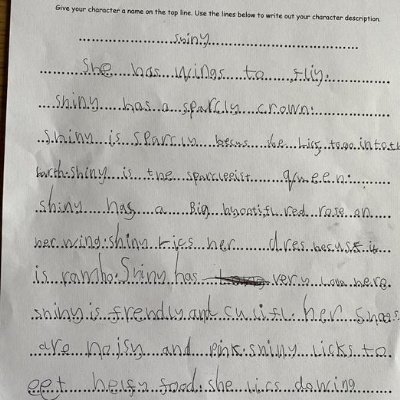 Give your character a name on the top line. Use the lines below to write out your character description.
shiny
She has wings to fliy.
shiny has a sparcly crown.
shiny is sparcly becus she lics to go into th
barth. shiny is the sparcleeist queen.
shiny has a Big byootifl red rose on
her wing. shiny lics her dres becuse it
is rambo. Shiny has very long here.
shiny is frendly and cuitfl. her shoos
are noisy and pink. shiny licks to
eet helfy food. she lics dancing